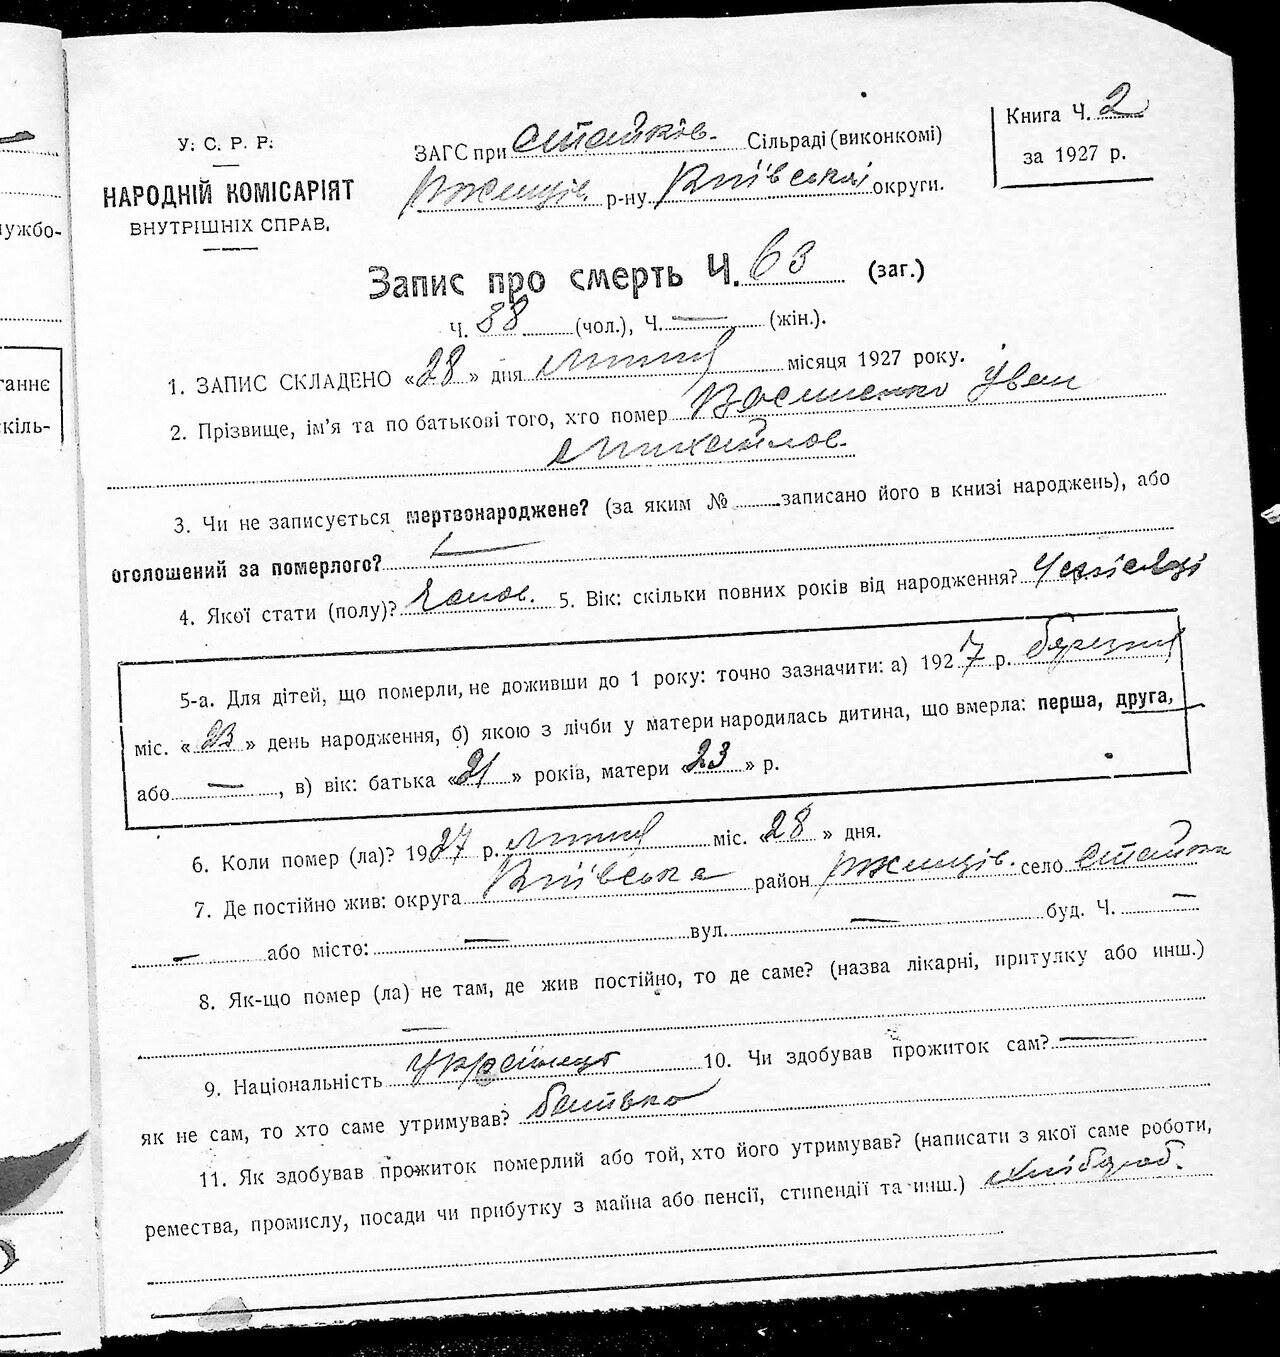 У. С. Р. Р.
НАРОДНІЙ КОМІСАРІЯТ
ВНУТРІШНІХ СПРАВ.
ЗАГС при Стайків. Сільраді (виконкомі)
Ржищів. р-ну Київської округи.
Книга Ч. 2
за 1927 р.
Запис про смерть Ч. 63 (заг.)
Ч. 38 (чол.), Ч. — (жін.).
1. ЗАПИС СКЛАДЕНО «28» дня липня місяця 1927 року.
2. Прізвище, ім'я та по батькові того, хто помер Василенко Іван
Михайлов.
3. Чи не записується мертвонароджене? (за яким № записано його в книзі народжень), або
оголошений за померлого? —
4. Якої стати (полу)? Чолов. 5. Вік: скільки повних років від народження? 4 місяці
5-а. Для дітей, що померли, не доживши до 1 року: точно зазначити: а) 1927 р. березня
міс. «23» день народження, б) якою з лічби у матери народилась дитина, що вмерла: перша, друга,
або —, в) вік: батька «21» років, матери «23» р.
6. Коли помер (ла)? 1927 р. липня міс. «28» дня.
7. Де постійно жив: округа Київська район Ржищів. село Стайки
— або місто: — вул. — буд. Ч. —
8. Як-що помер (ла) не там, де жив постійно, то де саме? (назва лікарні, притулку або инш.)
—
9. Національність Українець 10. Чи здобував прожиток сам? —
як не сам, то хто саме утримував? батько
11. Як здобував прожиток померлий або той, хто його утримував? (написати з якої саме роботи,
ремества, промислу, посади чи прибутку з майна або пенсії, стипендії та инш.) хлібороб.
ужбо-
ганнє
скіль-